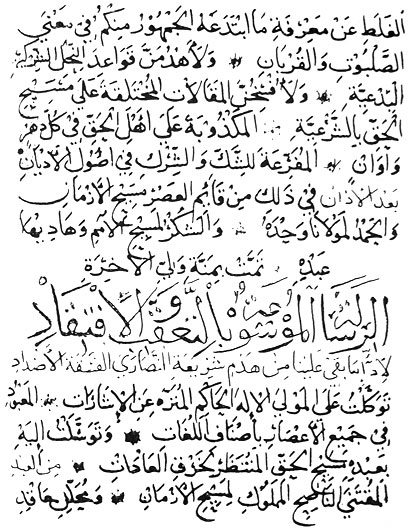 الغلط عن معرفة ما ابتدعه الجمهور منكم في معني
الصلبوت والقربان ولاهد من قواعد النحل الشركية
البدعية ولافتخن المقالات المختلقة على مسيح
الحق بالشرعية المكذوبة على اهل الحق في كل دهر
واوان المفرعة للشك والشرك في اصول الاديان
بعد الاذان في ذلك من قائم العصر مسيح الازمان
والحمد لمولانا وحده والشكر لمسيح الامم وهاديها
عبده تمت بمنة ولي الاخرة
الرسالة الموسومة بالتعقب والافتقاد
لادا ما بقي علينا من هدم شريعة النصارى الفسقة الاضداد
توكلت على المولى الاله الحاكم المنزه عن الاشارات المعبود
في جميع الاعصار باصناف اللغات وتوسلت اليه
بعبده مسيح الحق المنتظر لخرق العادات من العبد
المقتنى الناصح المملوك لمسيح الازمان ومحلل عاقد